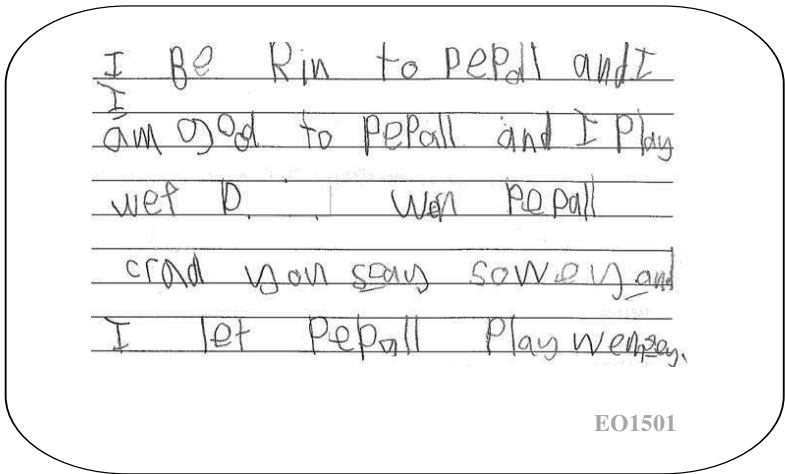 I Be Rin to pepall and I
I
am ogod to pepall and I Play
wef D. Wen pepall
crad you say sowey and
I let Pepall Play
EO1501